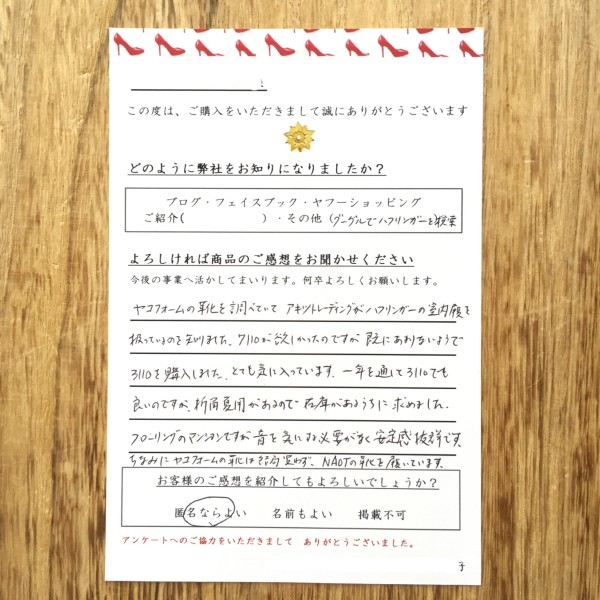 この度は、ご購入をいただきまして誠にありがとうございます
どのように弊社をお知りになりましたか？
ブログ・フェイスブック・ヤフーショッピング
ご紹介(　　　　　)・その他(グーグルでハフリンガーを検索
よろしければ商品のご感想をお聞かせください
今後の事業へ活かしてまいります。何卒よろしくお願いします。
ヤコフォームの靴を調べていて アキツトレーディングがハフリンガーの室内履を
扱っているのを知りました。7110が欲しかったのですが 既にありないようで
3110を購入しました。とても気に入っています。一年を通して3110でも
良いのですが、折角夏用があるので在庫があるうちに求めました。
フローリングのマンションですが音を気にする必要がなく安定感抜群です。
ちなみにヤコフォームの靴は結局買わず、NAOTの靴を履いています。
お客様のご感想を紹介してもよろしいでしょうか？
匿名ならよい　名前もよい　掲載不可
アンケートへのご協力をいただきまして　ありがとうございました。